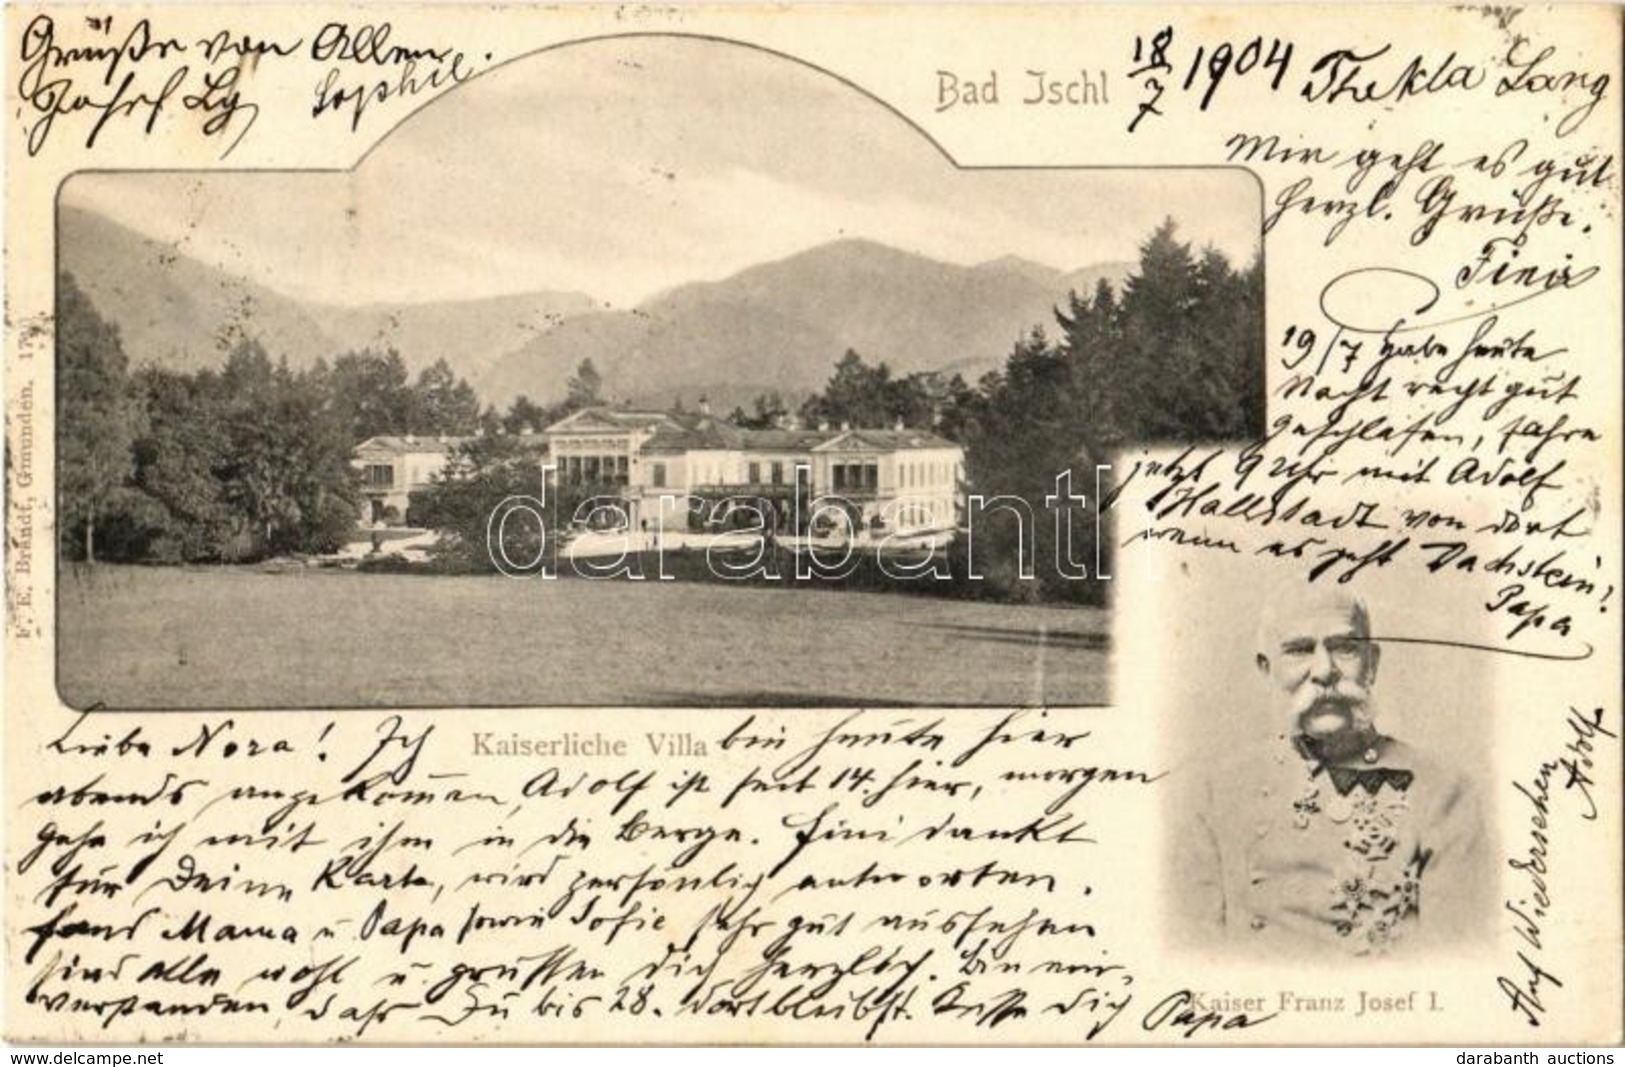 Grüße von Allen.
Josef Lg Sophie
Bad Ischl
18/7 1904 Thekla Lang
Mir geht es gut
herzl. Grüße.
Fini
19/7 habe heute
Nacht recht gut
geschlafen, fahre
jetzt 9 Uhr mit Adolf
Hallstadt von dort
wenn es geht Dachstein!
Papa
F. E. Brandt, Gmunden.
darabanth
Liebe Nora! Ich
Kaiserliche Villa
bin heute hier
abends angekommen, Adolf ist seit 14. hier, morgen
gehe ich mit ihm in die Berge. Fini dankt
für Deine Karte, wird persönlich antworten.
fand Mama u Papa sowie Sofie sehr gut aussehen
sind alle wohl u. grüssen Dich herzlich. Bin ein-
verstanden, dass Du bis 28. dort bleibst. Küsse Dich Papa
Kaiser Franz Josef I.
Auf Wiedersehen
Adolf
www.darabanth.com
darabanth auctions